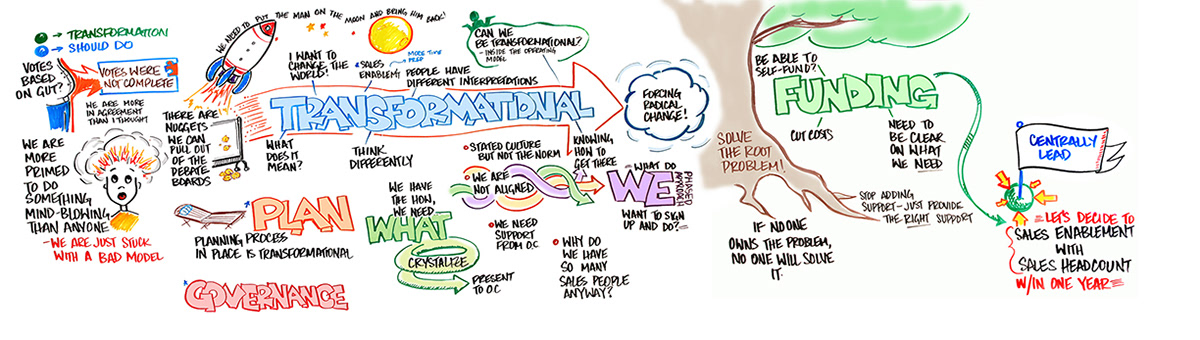 TRANSFORMATION
SHOULD DO
VOTES
BASED
ON GUT?
VOTES WERE
NOT COMPLETE
WE ARE MORE
IN AGREEMENT
THAN I THOUGHT
WE ARE
MORE
PRIMED
TO DO
SOMETHING
MIND-BLOWING
THAN ANYONE
- WE ARE JUST STUCK
WITH A BAD MODEL
WE NEED TO PUT THE MAN ON THE MOON AND BRING HIM BACK!
THERE ARE
NUGGETS
WE CAN
PULL OUT
OF THE
DEBATE
BOARDS
I WANT TO
CHANGE THE
WORLD!
SALES
ENABLEMT
MORE TIME
PREP
PEOPLE HAVE
DIFFERENT INTERPRETATIONS
CAN WE
BE TRANSFORMATIONAL?
- INSIDE THE OPERATING
MODEL
TRANSFORMATIONAL
WHAT
DOES IT
MEAN?
THINK
DIFFERENTLY
FORCING
RADICAL
CHANGE!
PLAN
PLANNING PROCESS
IN PLACE IS TRANSFORMATIONAL
GOVERNANCE
WE HAVE
THE HOW,
WE NEED
WHAT
CRYSTALIZE
PRESENT
TO O.C
STATED CULTURE
BUT NOT THE NORM
WE ARE
NOT ALIGNED
WE NEED
SUPPORT
FROM O.C
KNOWING
HOW TO
GET THERE
WHY DO
WE HAVE
SO MANY
SALES PEOPLE
ANYWAY?
WHAT DO
WE
PHASED
APPROACH
WANT TO SIGN
UP AND DO?
SOLVE
THE ROOT
PROBLEM!
IF NO ONE
OWNS THE PROBLEM,
NO ONE WILL SOLVE
IT
BE ABLE TO
SELF-FUND?
FUNDING
CUT COSTS
NEED TO
BE CLEAR
ON WHAT
WE NEED
STOP ADDING
SUPPORT - JUST PROVIDE
THE RIGHT SUPPORT
CENTRALLY
LEAD
LET'S DECIDE TO
SALES ENABLEMENT
WITH
SALES HEADCOUNT
W/IN ONE YEAR